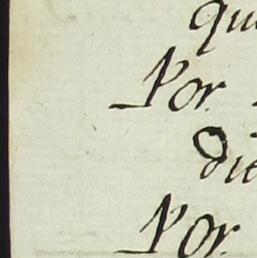 qu
Por
die
Por